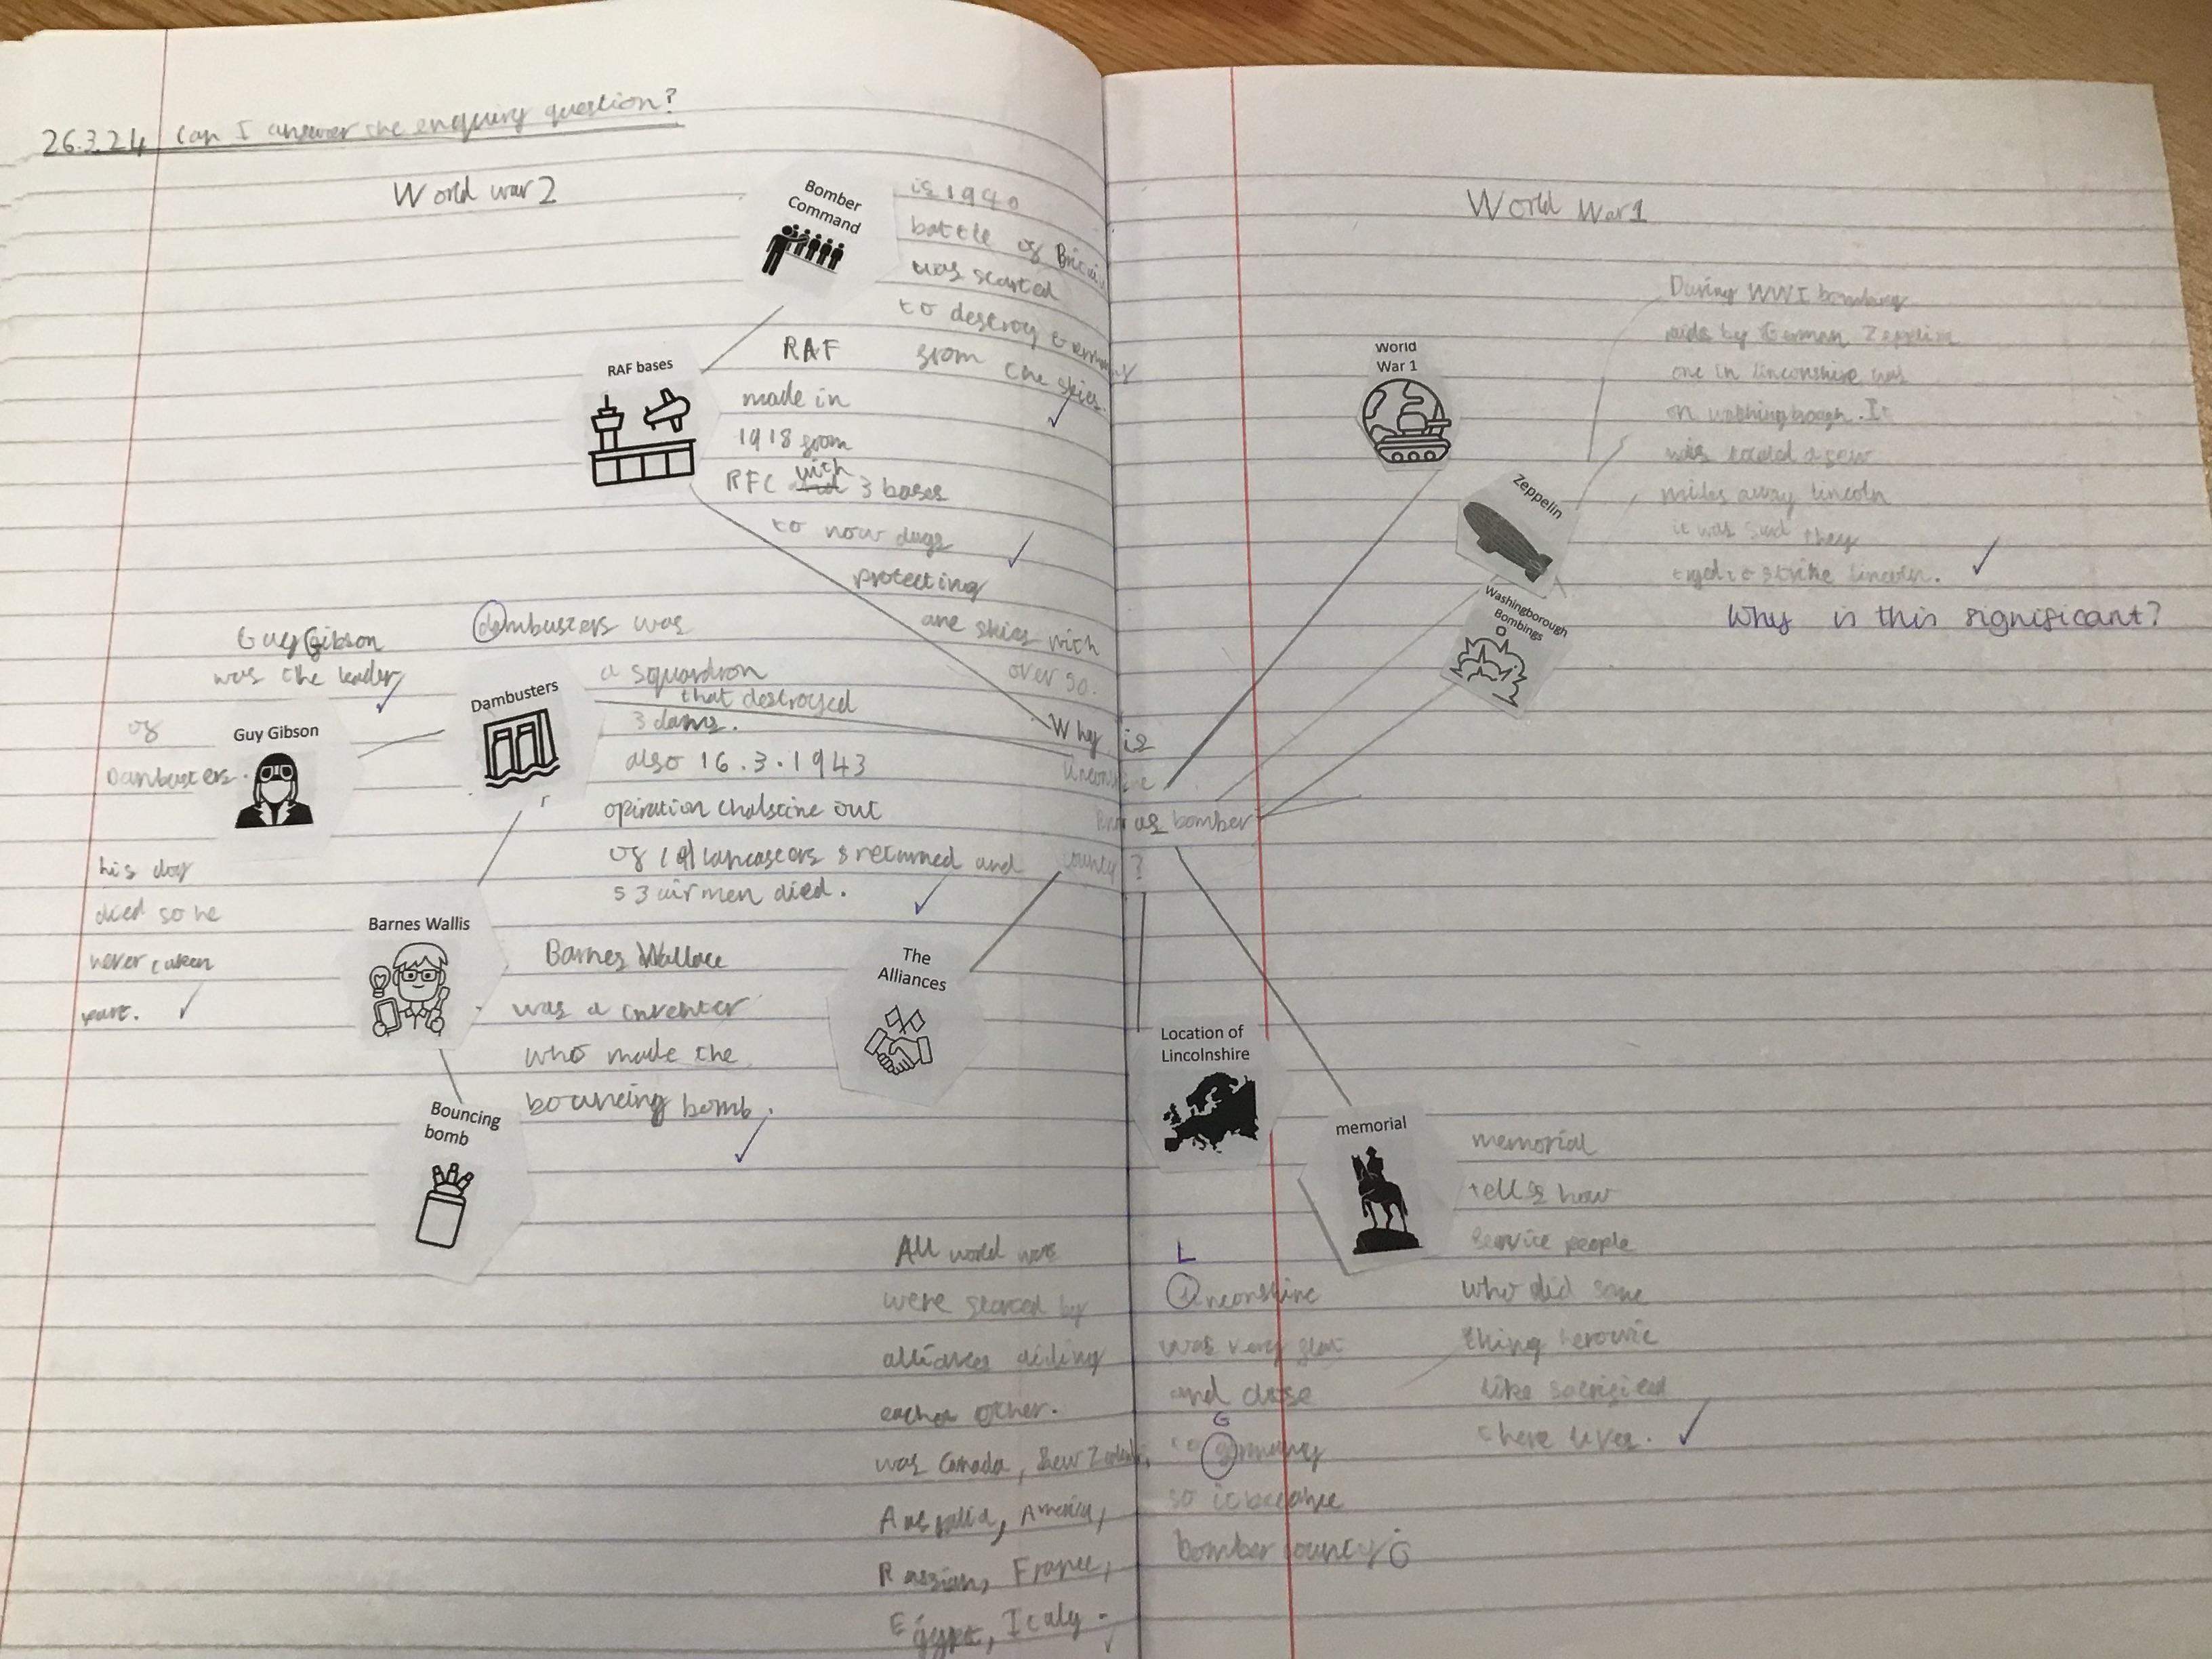 26.3.24 Can I answer the enquiry question?
World war 2
Bomber
Command
is 1940
battle of Britain
was started
to destroy Germany
from the skies.
RAF bases
RAF
made in
1918 from
RFC with 3 bases
to now days
protecting
are skies with
over 90.
Guy Gibson
was the leader
of
Dambusters.
Guy Gibson
his dog
died so he
never taken
part.
Dambusters
dambusters was
a squardron
that destroyed
3 dams.
also 16.3.1943
opiration chalstine out
of 19 lancasters 8 returned and
53 airmen died.
Barnes Wallis
Barnes Wallace
was a inventer
who made the
bouncing bomb.
Bouncing
bomb
The
Alliances
All world wars
were started by
alliances aiding
each other.
was Canada, New Zealand,
Australia, America,
Russian, France,
Egypt, Italy.
Why is
linconshire
as bomber
county?
World War 1
World
War 1
Zeppelin
Washingborough
Bombings
During WWI bombing
raids by German Zeppelin
one in linconshire was
on washingborogh. It
was located a few
miles away lincoln
it was said they
to strike lincoln.
Why is this significant?
Location of
Lincolnshire
L
linconshire
was very flat
and close
G
to germany
so it became
bomber county
memorial
memorial
tells how
service people
who did some
thing herowic
like sacrificed
there lives.